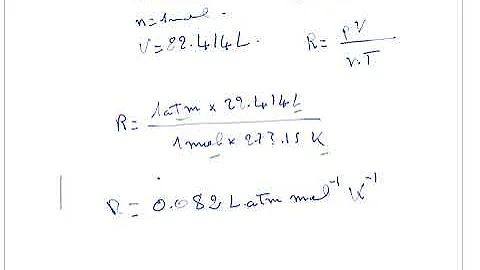 n=1mol.
V=22.414L.
R= PV / n.T
R= 1atm × 22.414L / 1mol × 273.15 K
R= 0.082 L atm mol⁻¹ K⁻¹